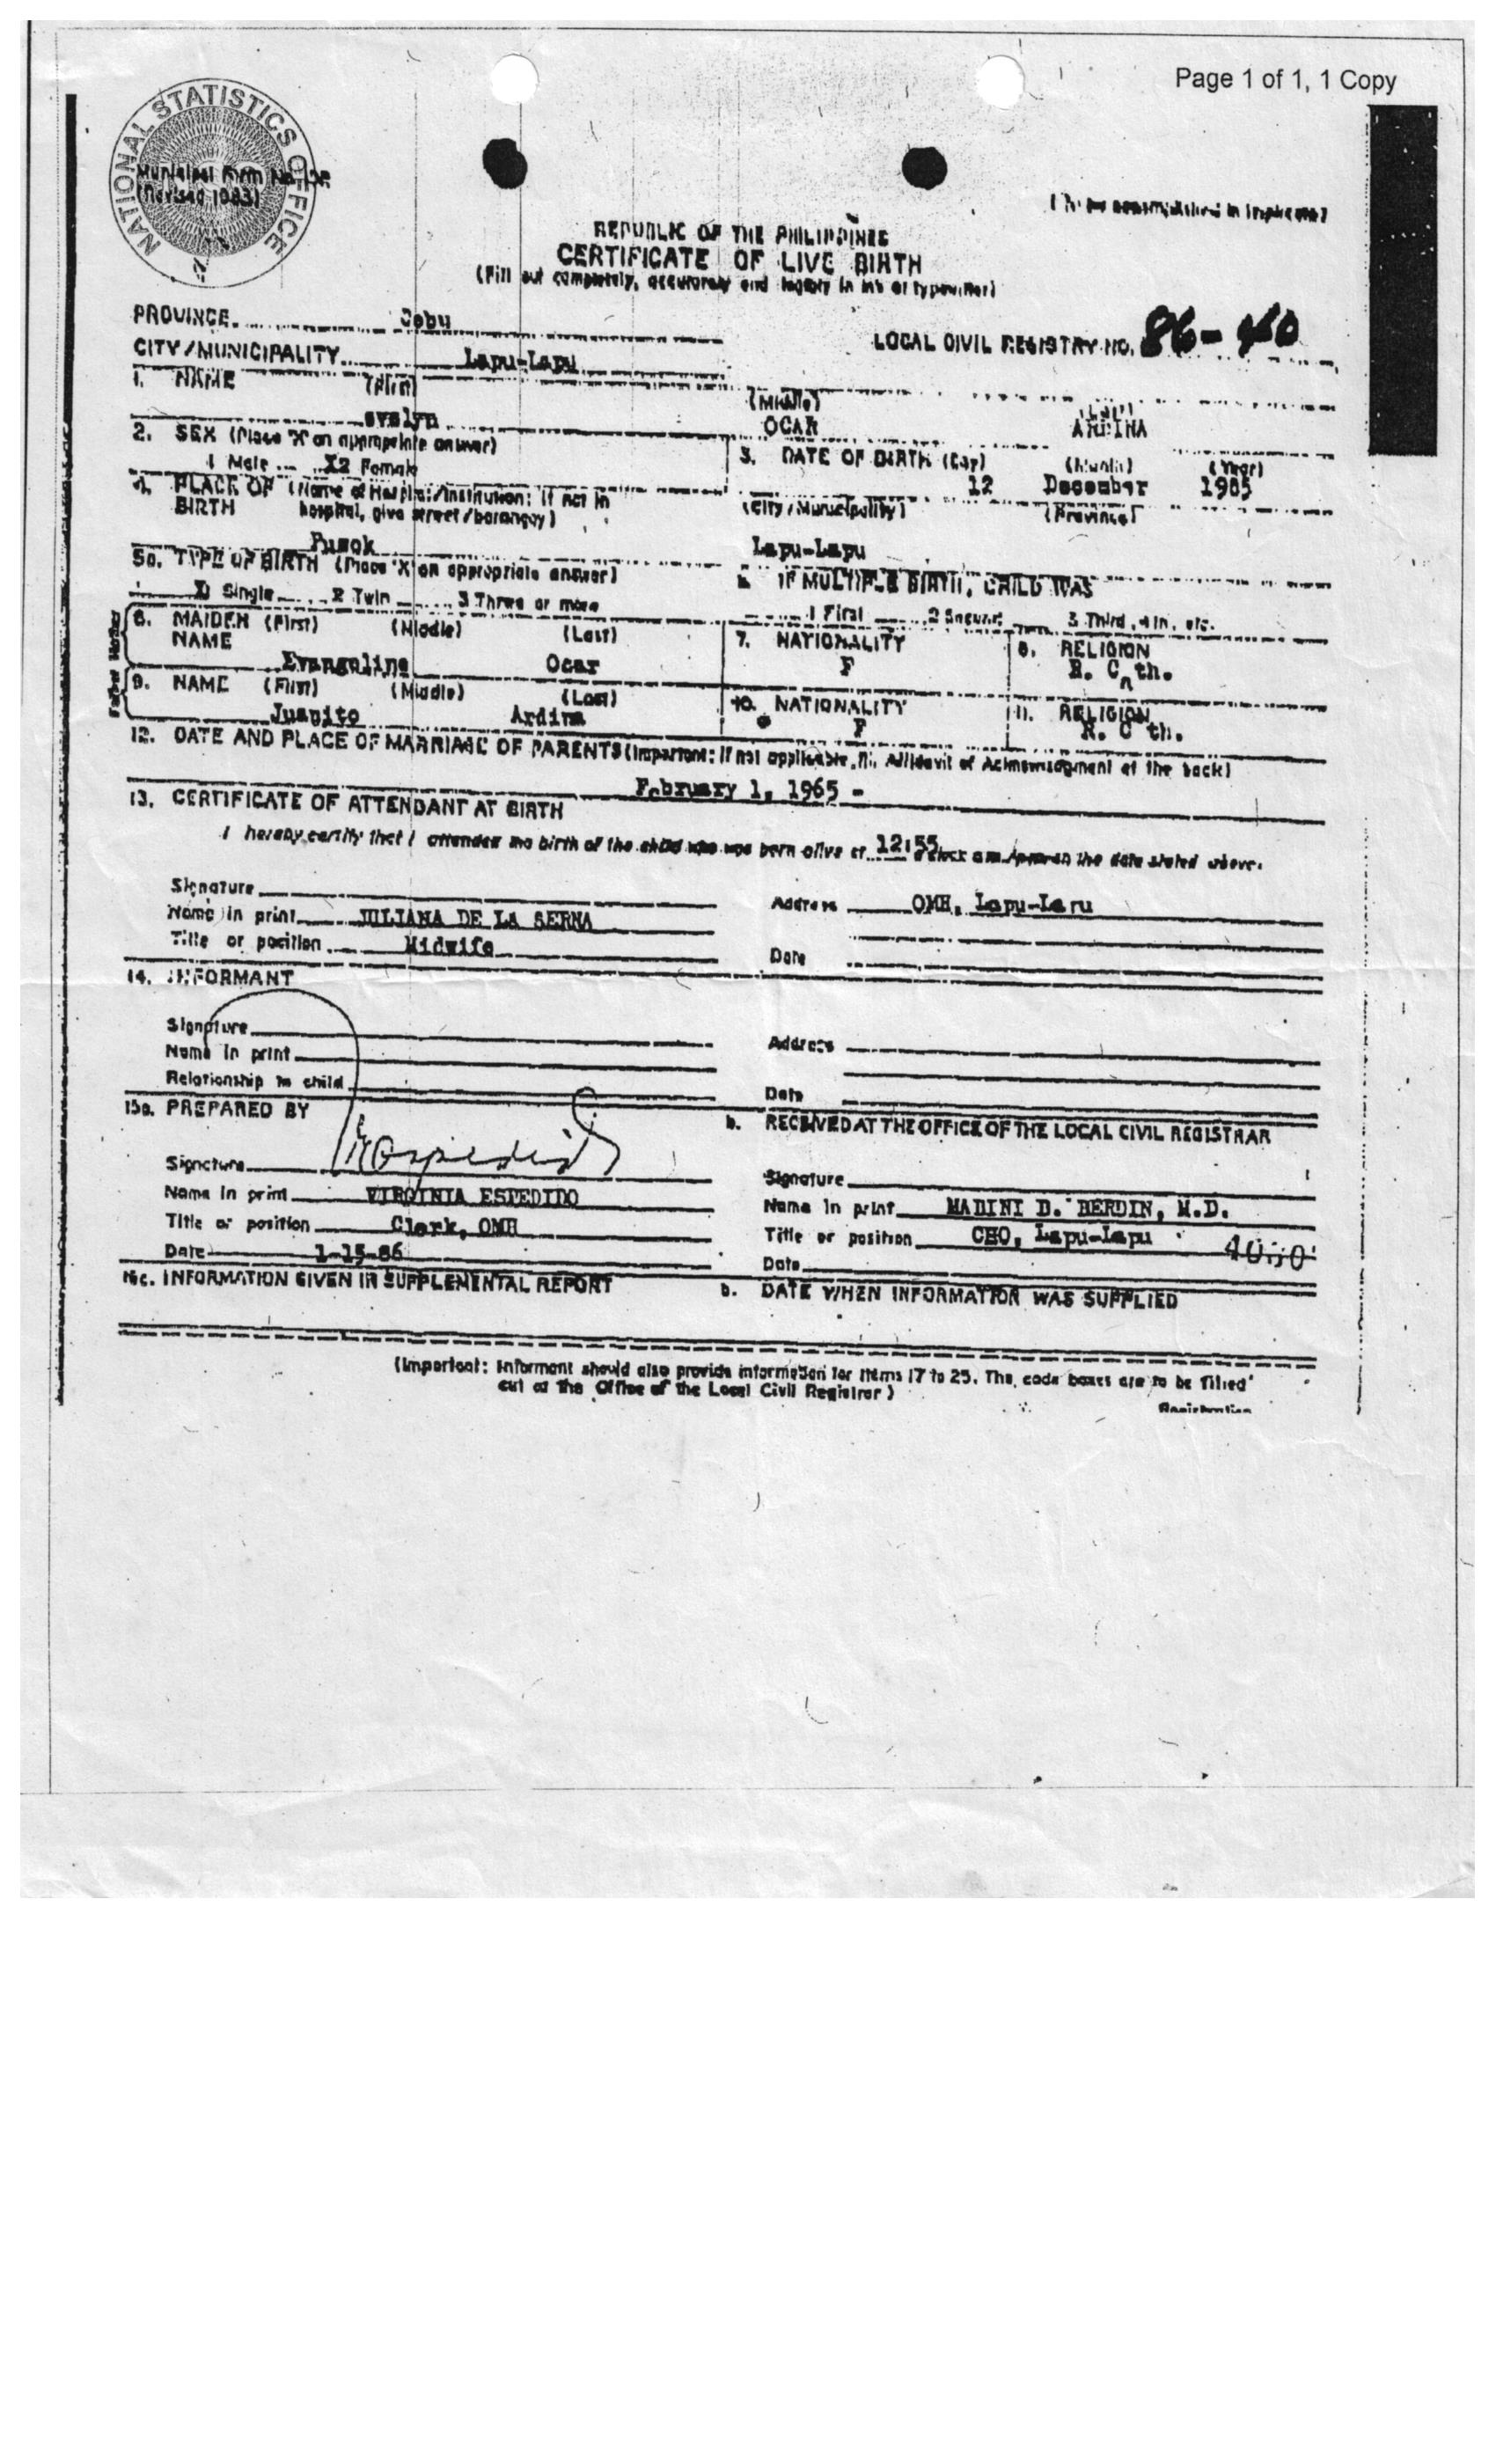 Page 1 of 1, 1 Copy
NATIONAL STATISTICS OFFICE
Municipal Form No.
(Revised 1983)
REPUBLIC OF THE PHILIPPINES
CERTIFICATE OF LIVE BIRTH
(Fill out completely, accurately and legibly in ink or typewriter)
PROVINCE Cebu
LOCAL CIVIL REGISTRY NO. 86-
CITY/MUNICIPALITY Lapu-Lapu
1. NAME (First) (Middle) (Last)
evelyn OCAR ARDINA
2. SEX (Place 'X' on appropriate answer)
1 Male X2 Female
3. DATE OF BIRTH (Day) (Month) (Year)
12 December 1985
4. PLACE OF BIRTH (Name of Hospital/Institution: If not in hospital, give street/barangay)
(City/Municipality) (Province)
Pusok Lapu-Lapu
5a. TYPE OF BIRTH (Place 'X' on appropriate answer)
1 Single 2 Twin 3 Three or more
IF MULTIPLE BIRTH, CHILD WAS
1 First 2 Second 3 Third, 4th, etc.
Mother
6. MAIDEN NAME (First) (Middle) (Last)
Evangeline Ocar
7. NATIONALITY
F
8. RELIGION
R. C th.
Father
9. NAME (First) (Middle) (Last)
Juanito Ardina
10. NATIONALITY
F
11. RELIGION
R. C th.
12. DATE AND PLACE OF MARRIAGE OF PARENTS (Important: If not applicable, fill Affidavit of Acknowledgment at the back)
February 1, 1965 -
13. CERTIFICATE OF ATTENDANT AT BIRTH
I hereby certify that I attended the birth of the child who was born alive at 12:55 o'clock am/pm on the date stated above.
Signature
Name in print JULIANA DE LA SERNA
Title or position Midwife
Address OMH, Lapu-Laru
Date
14. INFORMANT
Signature
Name in print
Relationship to child
Address
Date
15a. PREPARED BY
Signature
Name in print VIRGINIA ESPEDIDO
Title or position Clerk, OMH
Date 1-15-86
b. RECEIVED AT THE OFFICE OF THE LOCAL CIVIL REGISTRAR
Signature
Name in print MADINI D. BERDIN, M.D.
Title or position CHO, Lapu-Lapu
Date
INFORMATION GIVEN IN SUPPLEMENTAL REPORT
b. DATE WHEN INFORMATION WAS SUPPLIED
(Important: Informant should also provide information for items 17 to 25. The code boxes are to be filled
out at the Office of the Local Civil Registrar)
Registration